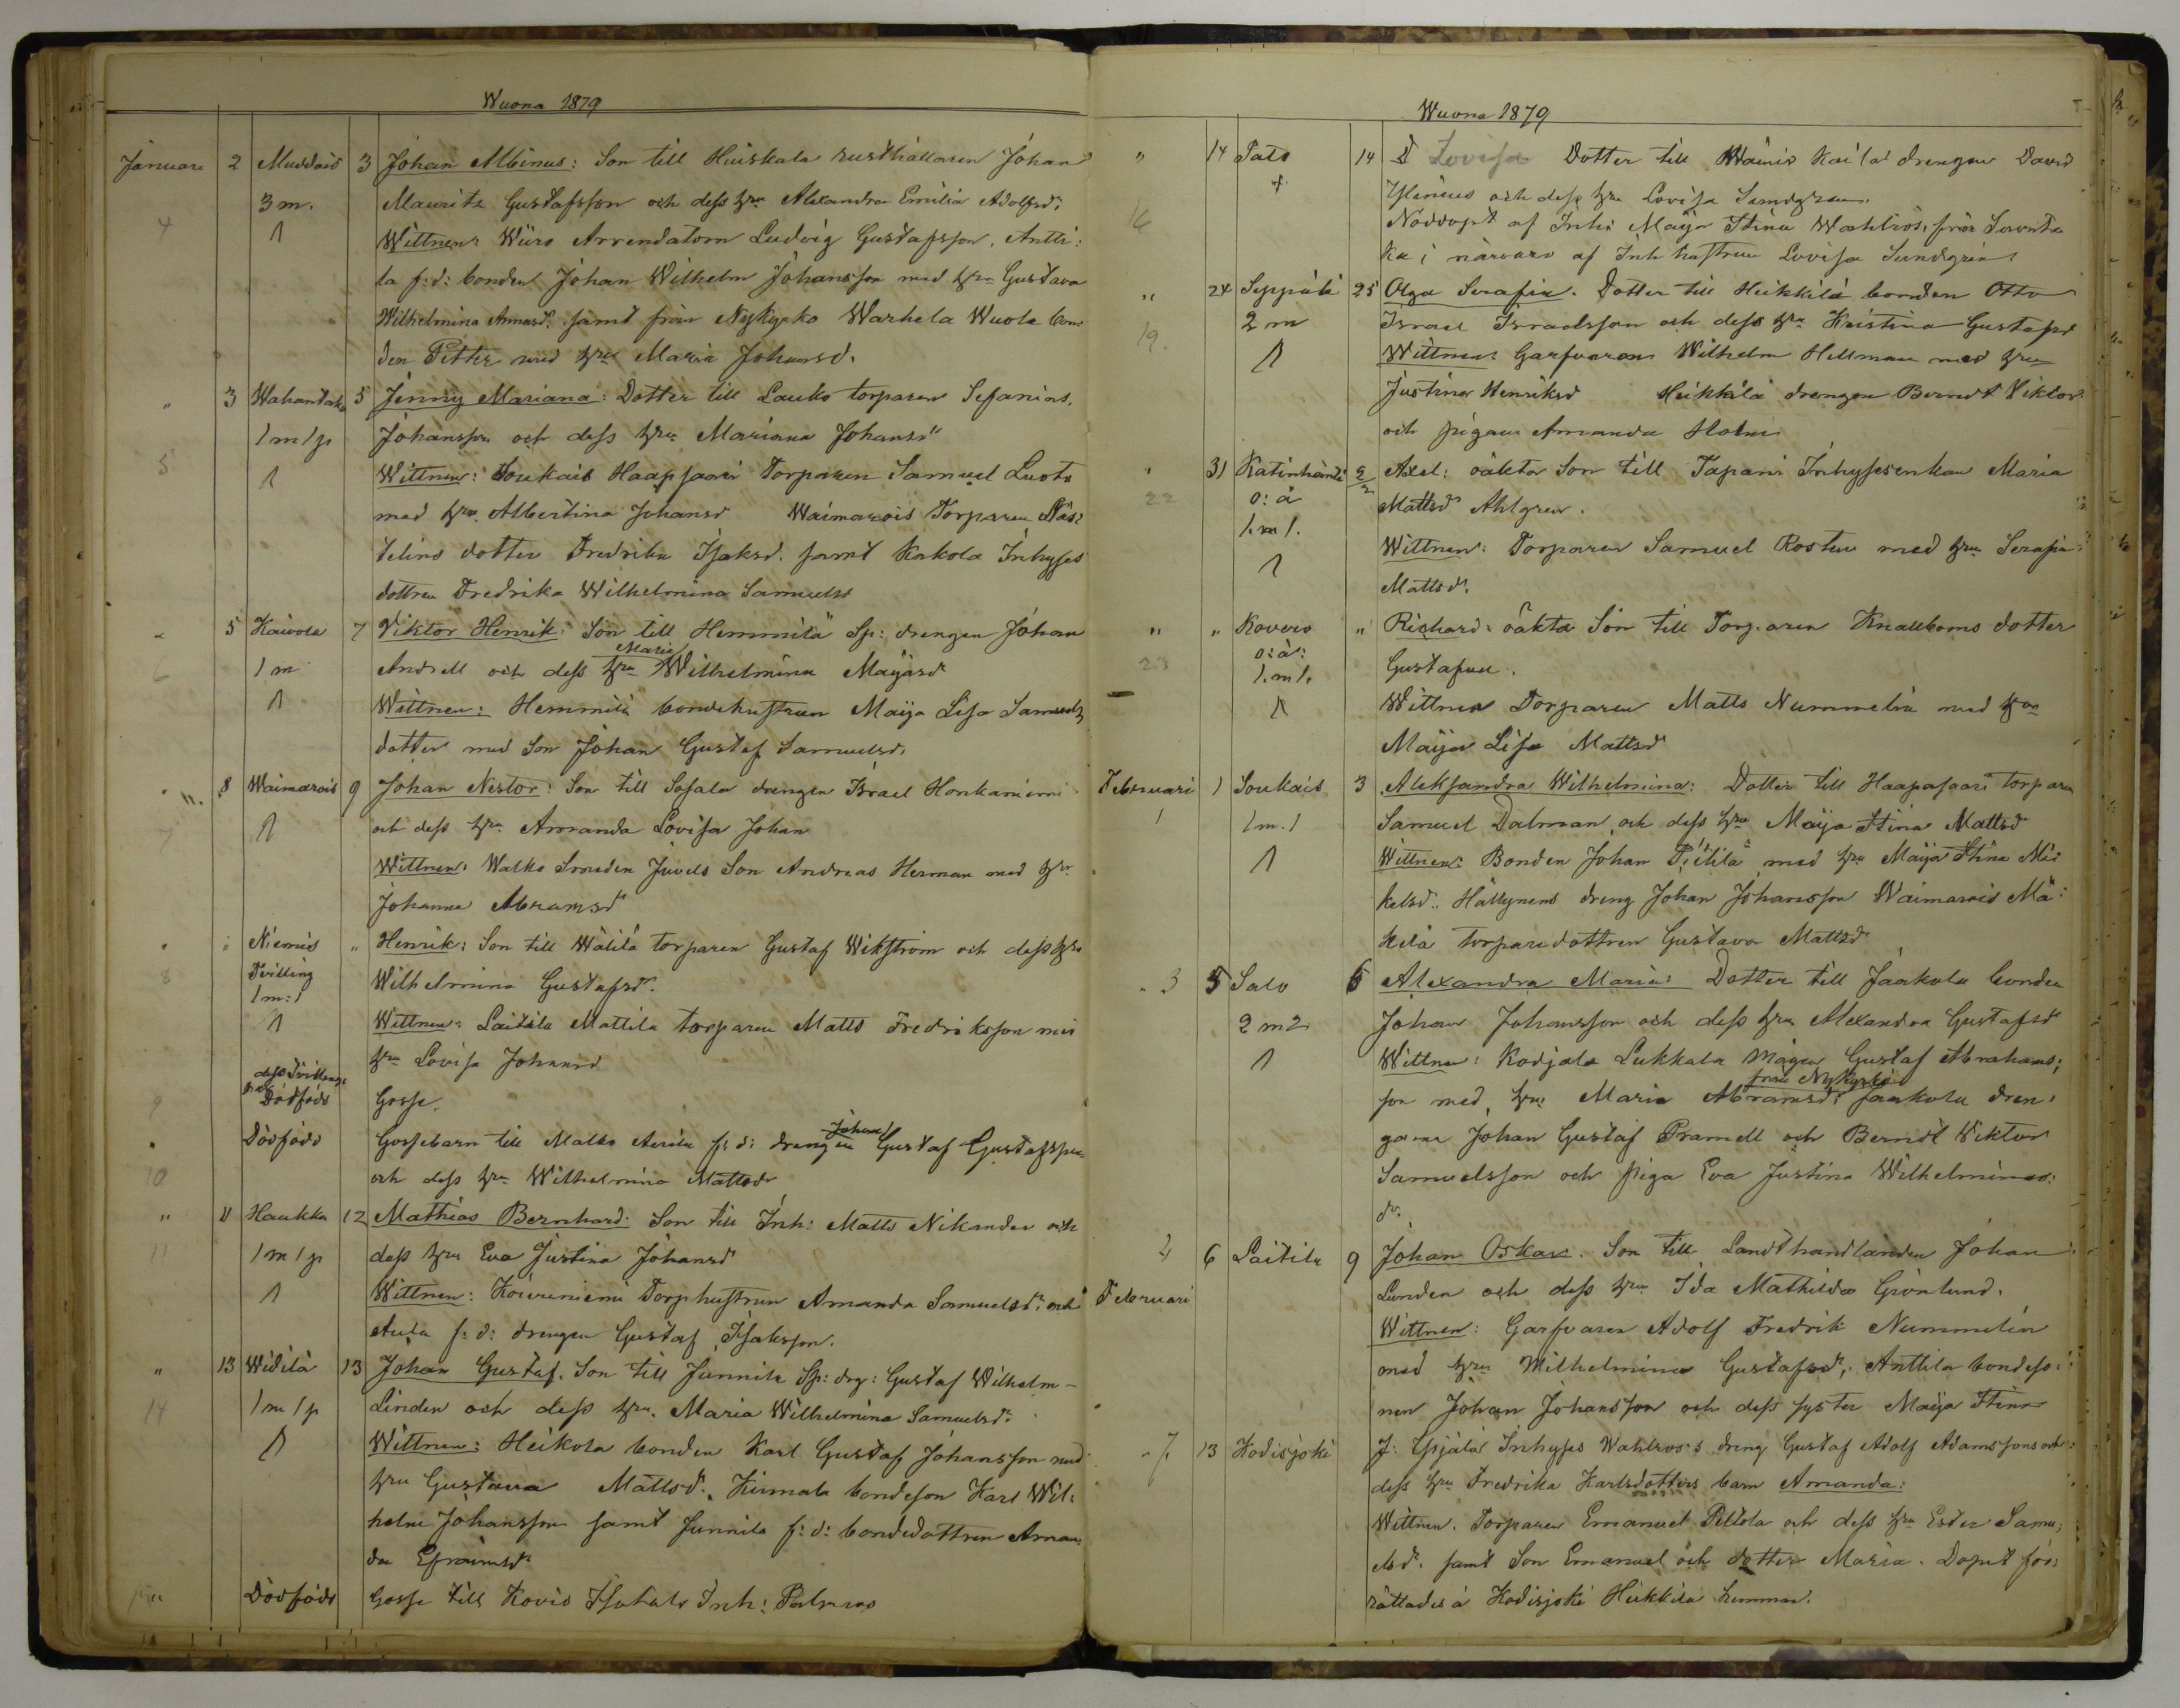 Wuona 1879
Januari 2 Muddais 3 Johan Albinus: Son till Huiskala rusthållaren Johan
3 m. Mauritz Gustafsson och dess hru Alexandra Emilia Adolfsdr.
4 1 Wittnen: Arrendatorn Ludvig Gustafsson, Antti:
la f: d: bonden Johan Wilhelm Johansson med hru Gustava
Wilhelmina samt från Nykyrko Warhela Wuola bon
den Petter med hru Maria Johansd.
" 3 Wahantaka 5 Jenny Mariana: Dotter till Lauko torparen Sefanias
1 m 1 p Johansson och dess hru Mariana Johansd
5 1 Wittnen: Soukais Haapsaari Torparen Samuel Luoto
med hru Albertina Johansd Waimarois Torparen
dotter Fredrika Isaksd. samt Kakola Inhyses
dottren Fredrika Wilhelmina Samuelsd
" 5 Kaivola 7 Viktor Henrik: Son till Hemmilä Sp: drengen Johan
Maria
6 1 m Andell och dess hru Wilhelmina Majasdr
1 Wittnen: Hemmilä bondehustrun Maija Lisa Samuels
dotter med Son Johan Gustaf Samuelsd.
" 8 Waimarois 9 Johan Nestor: Son till Sosala drengen Israel Honkaniemi
7 1 och dess hru Amanda Lovisa Johan
Wittnen: Walko Smeden Juvels Son Andreas Herman med hru
Johanna Abramsdr
" " Niemis " Henrik: Son till Wälilä torparen Gustaf Wikström och dess hru
8 Tvilling Wilhelmina Gustafsdr.
1 m: 1
1 Wittnen: Laitila Mattila torparen Matts Fredriksson med
hru Lovisa Johansd
dess Tvilling
9 Dödföds Gosse.
Johan
" Dödföds Gossebarn till Malko f: d: drengen Gustaf Gustafsson
10 och dess hru Wilhelmina Mattsdr
" 11 Haukka 12 Mathias Bernhard: Son till Inh: Matts Nikander och
11 1 m 1 p dess hru Eva Justina Johansd
1 Wittnen: Koiveniemi Torphustrun Amanda Samuelsdr. och
f: d: drengen Gustaf Isaksson.
" 13 Widilä 13 Johan Gustaf. Son till Junnila Sp: drg: Gustaf Wilhelm
14 1 m 1 p Linden och dess hru. Maria Wilhelmina Samuelsdr.
1 Wittnen: Heikola bonden Karl Gustaf Johansson med
hru Gustava Mattsdr. Kirmala bondeson Karl Wil:
helm Johansson samt Junnila f: d: bondedottren Aman
da Efraimsdr
Dödföds Gosse till Kovio Inh: Palmros
Wuona 1879
" 14 Pato 14 Lovisa Dotter till Wäinis Kaila drengen David
och dess hru Lovisa Sundgren.
16 Nöddopt af Inh: Maija Stina Wahlros, från
ka i närvaro af Inh hustrun Lovisa Sundgren
" 24 Seppälä 25 Olga Serafia. Dotter till Heikkilä bonden Otto
2 m Israel Israelsson och dess hru Kristina Gustafsd
19. 1 Wittnen Garfvaren Wilhelm Hellman med hru
Justina Henriksd Heikkilä drengen Berndt Viktor
och pigan Amanda Holm
" 31 Katinhäntä 2/2 Axel: oäkta Son till Tapani Inhysesenkan Maria
22 o: ä Mattsd Ahlgren.
1. m 1. Wittnen: Torparen Samuel Rosten med hru Serafia
1 Mattsd.
" " Kovero " Richard: oäkta Son till Torparen Knallboms dotter
23 o: ä: Gustafva.
1. m 1.
1 Wittnen Torparen Matts Nummelin med hru
Maija Lisa Mattsd
Februari 1 Soukais 3 Aleksandra Wilhelmina: Dotter till Haapasaari torparen
1 1 m. 1 Samuel Dalman och dess hru Maija Stina Mattsd
1 Wittnen: Bonden Johan Pietilä med hru Maija Stina Mi:
kelsd. Hällynens dreng Johan Johansson Waimarois Mä:
kelä torparedottren Gustava Mattsd
" 3 5 Salo 6 Alexandra Maria: Dotter till Jaakola bonden
2 m 2 Johan Johansson och dess hru Alexandra Gustafsd
1 Wittnen: Kodjala Lukkala mågen Gustaf Abrahams:
från Nykyrko
son med hru Maria Abramsd: Jaakola dren:
garne Johan Gustaf Pramell och Berndt Viktor
Samuelsson och piga Eva Justina Wilhelmina
dr.
4 6 Laitila 9 Johan Oskar. Son till Landthandlanden Johan
Februari Lunden och dess hru Ida Mathilda Grönlund.
Wittnen: Garfvaren Adolf Fredrik Nummelin
med hru Wilhelmina Gustafsdr, Anttila bondeso:
nen Johan Johansson och dess syster Maija Stina
" 7. 13 Kodisjoki J: Inhyses Wahlros's dreng Gustaf Adolf Adamssons och
dess hru Fredrika Karlsdotters barn Amanda:
Wittnen. Torparen Emanuel Peltola och dess hru Ester Samu:
elsd. samt Son Emanuel och dotter Maria. Dopet för:
rättades å Kodisjoki Heikkilä hemman.